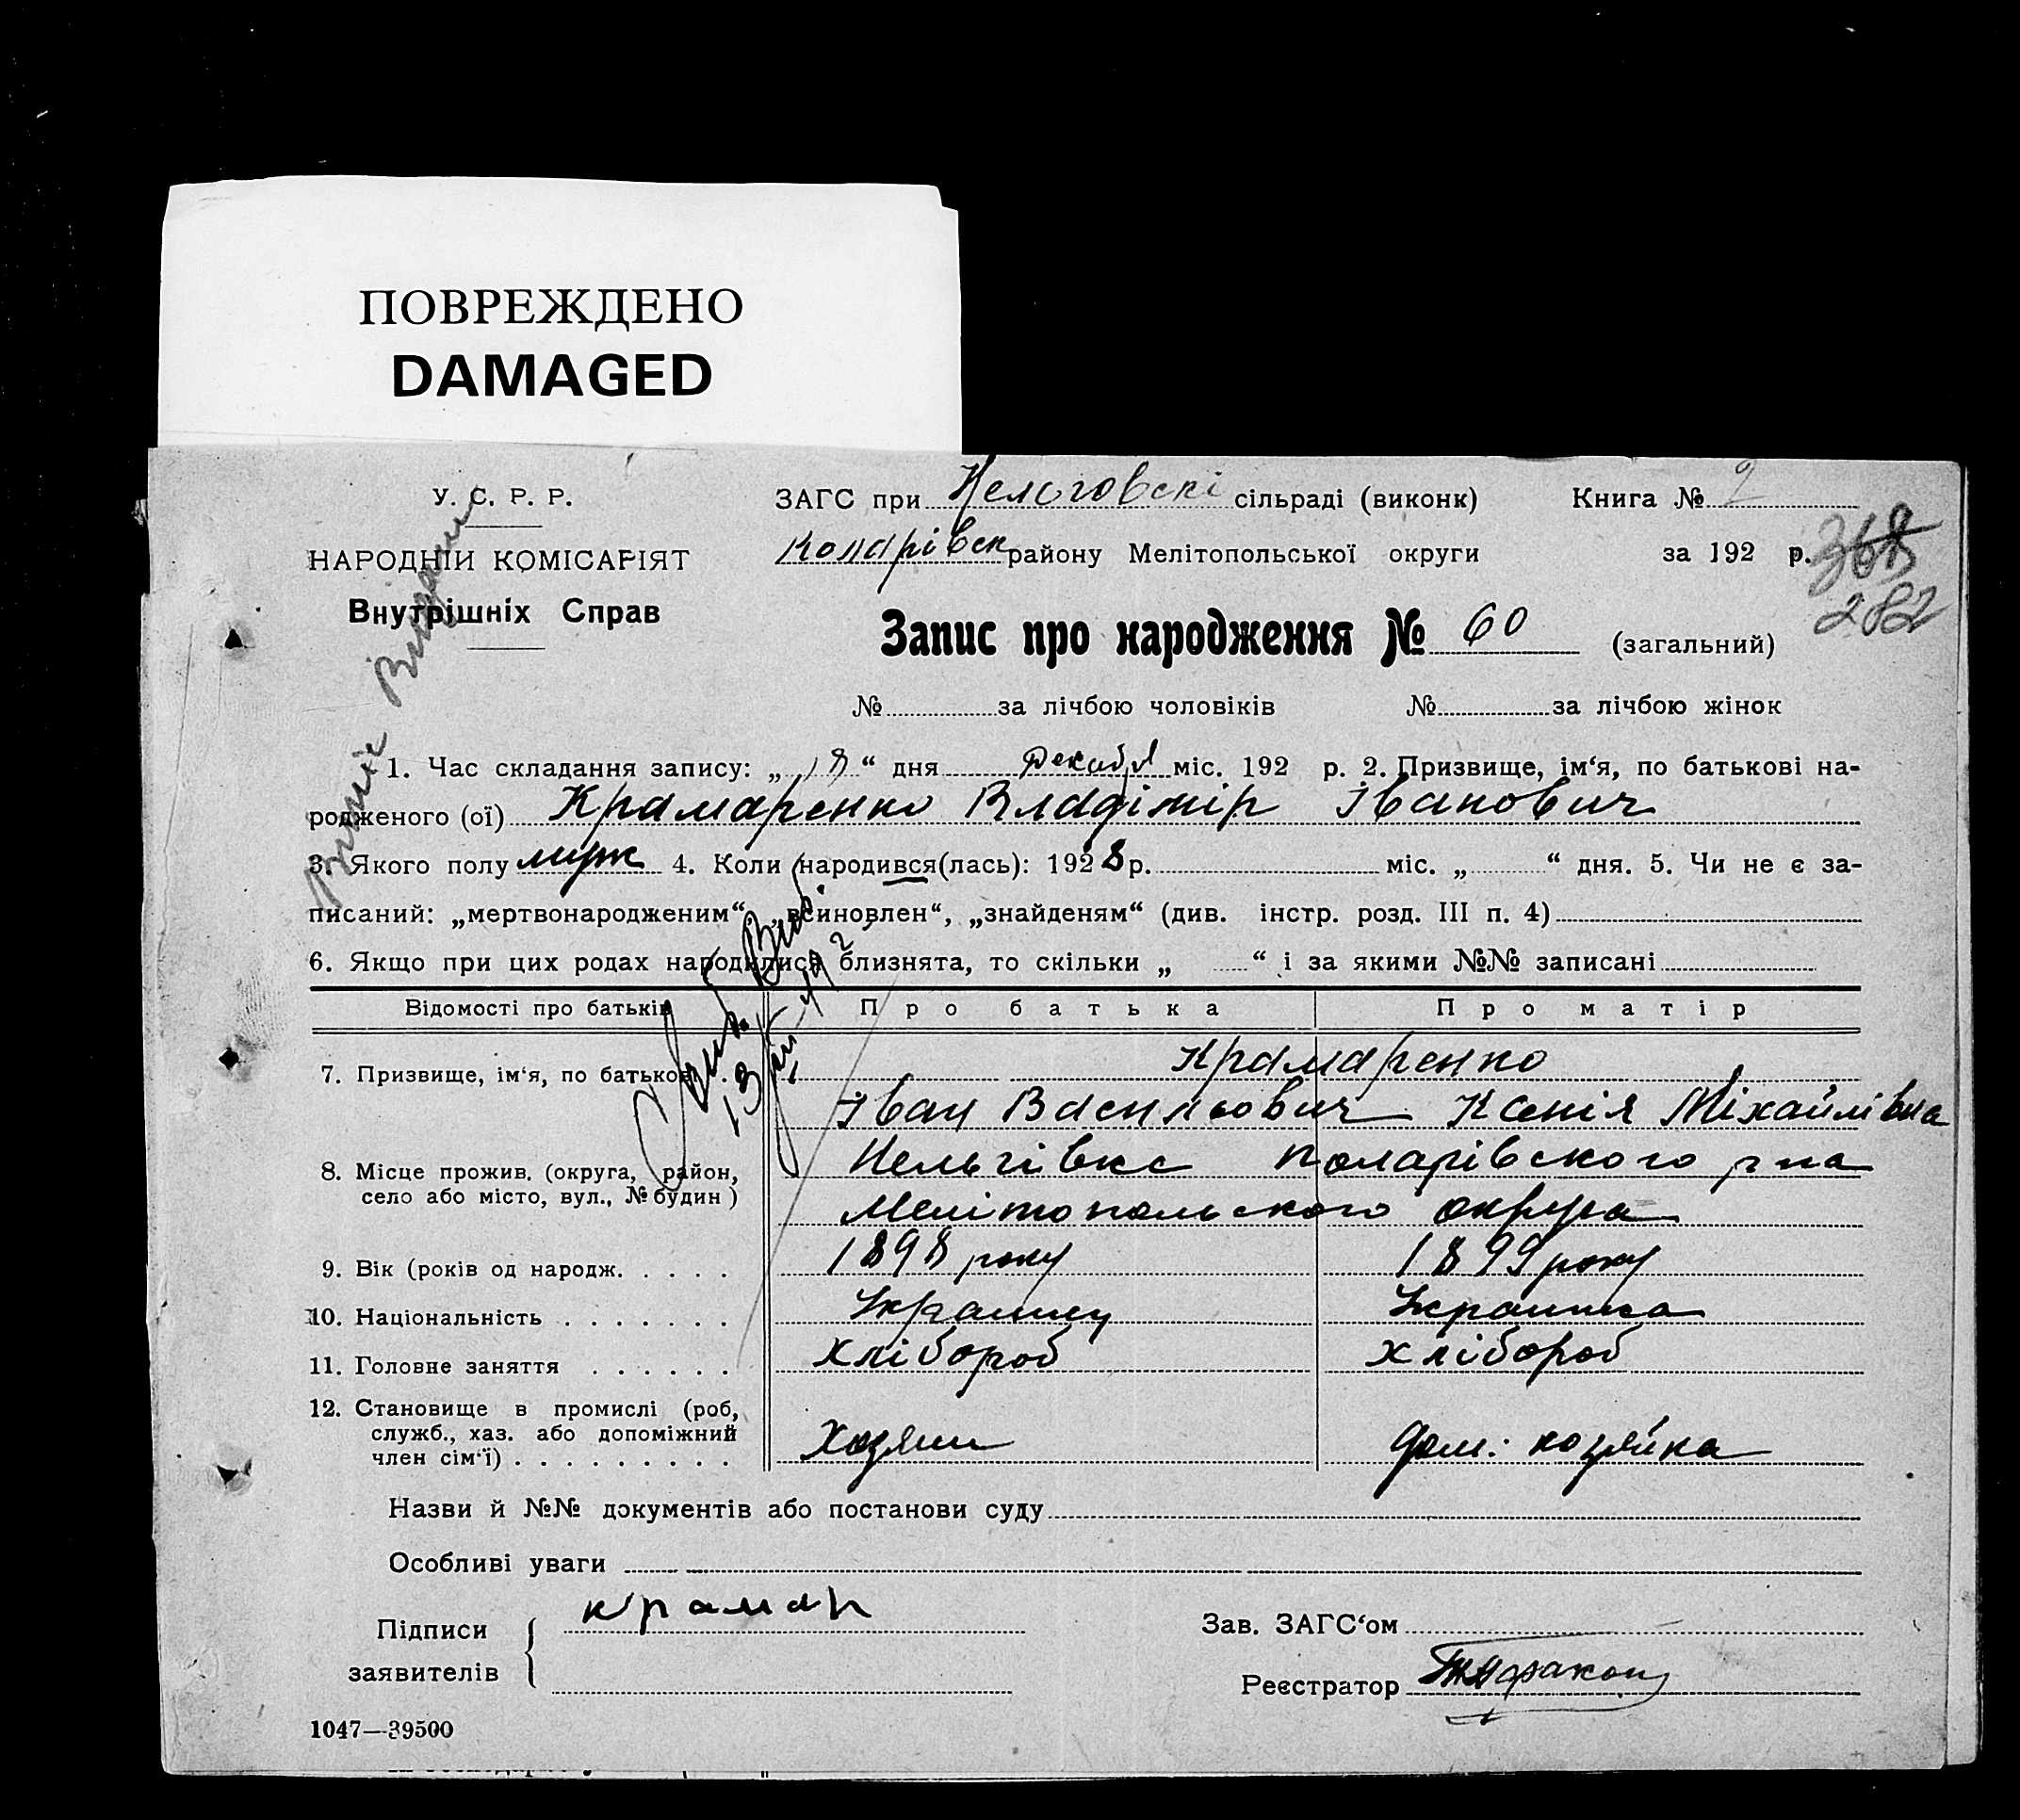 ПОВРЕЖДЕНО
DAMAGED
У. С. Р. Р.
НАРОДНІЙ КОМІСАРІЯТ
Внутрішніх Справ
ЗАГС при Нельговскі сільраді (виконк)
Книга № 2
району Мелітопольської округи
за 192 р.
368
282
Запис про народження № 60 (загальний)
№ за лічбою чоловіків № за лічбою жінок
1. Час складання запису: „ 18 “ дня декабря міс. 192 р. 2. Призвище, ім‘я, по батькові на-
родженого (ої) Крамаренко Владімір Іванович
3. Якого полу муж 4. Коли народився(лась): 1928 р. міс. „ “ дня. 5. Чи не є за-
писаний: „мертвонародженим“, „всиновлен“, „знайденям“ (див. інстр. розд. III п. 4)
6. Якщо при цих родах народилися близнята, то скільки „ “ і за якими №№ записані
Відомості про батьків Про батька Про матір
7. Призвище, ім‘я, по батькові Крамаренко
Іван Васильович Ксенія Міхайлівна
8. Місце прожив. (округа, район, село або місто, вул., № будин)
Нельгівка
Мелітопольского округа
9. Вік (років од народж. . . . . 1898 року 1899 року
10. Національність . . . . . . . Украинец Украинка
11. Головне заняття . . . . . . хлібороб хлібороб
12. Становище в промислі (роб,
служб., хаз. або допоміжний
член сім‘ї) . . . . . . . . . Хозяин дом. хозяйка
Назви й №№ документів або постанови суду
Особливі уваги
Підписи
заявителів
крамар
Зав. ЗАГС‘ом
Реєстратор
1047—39500